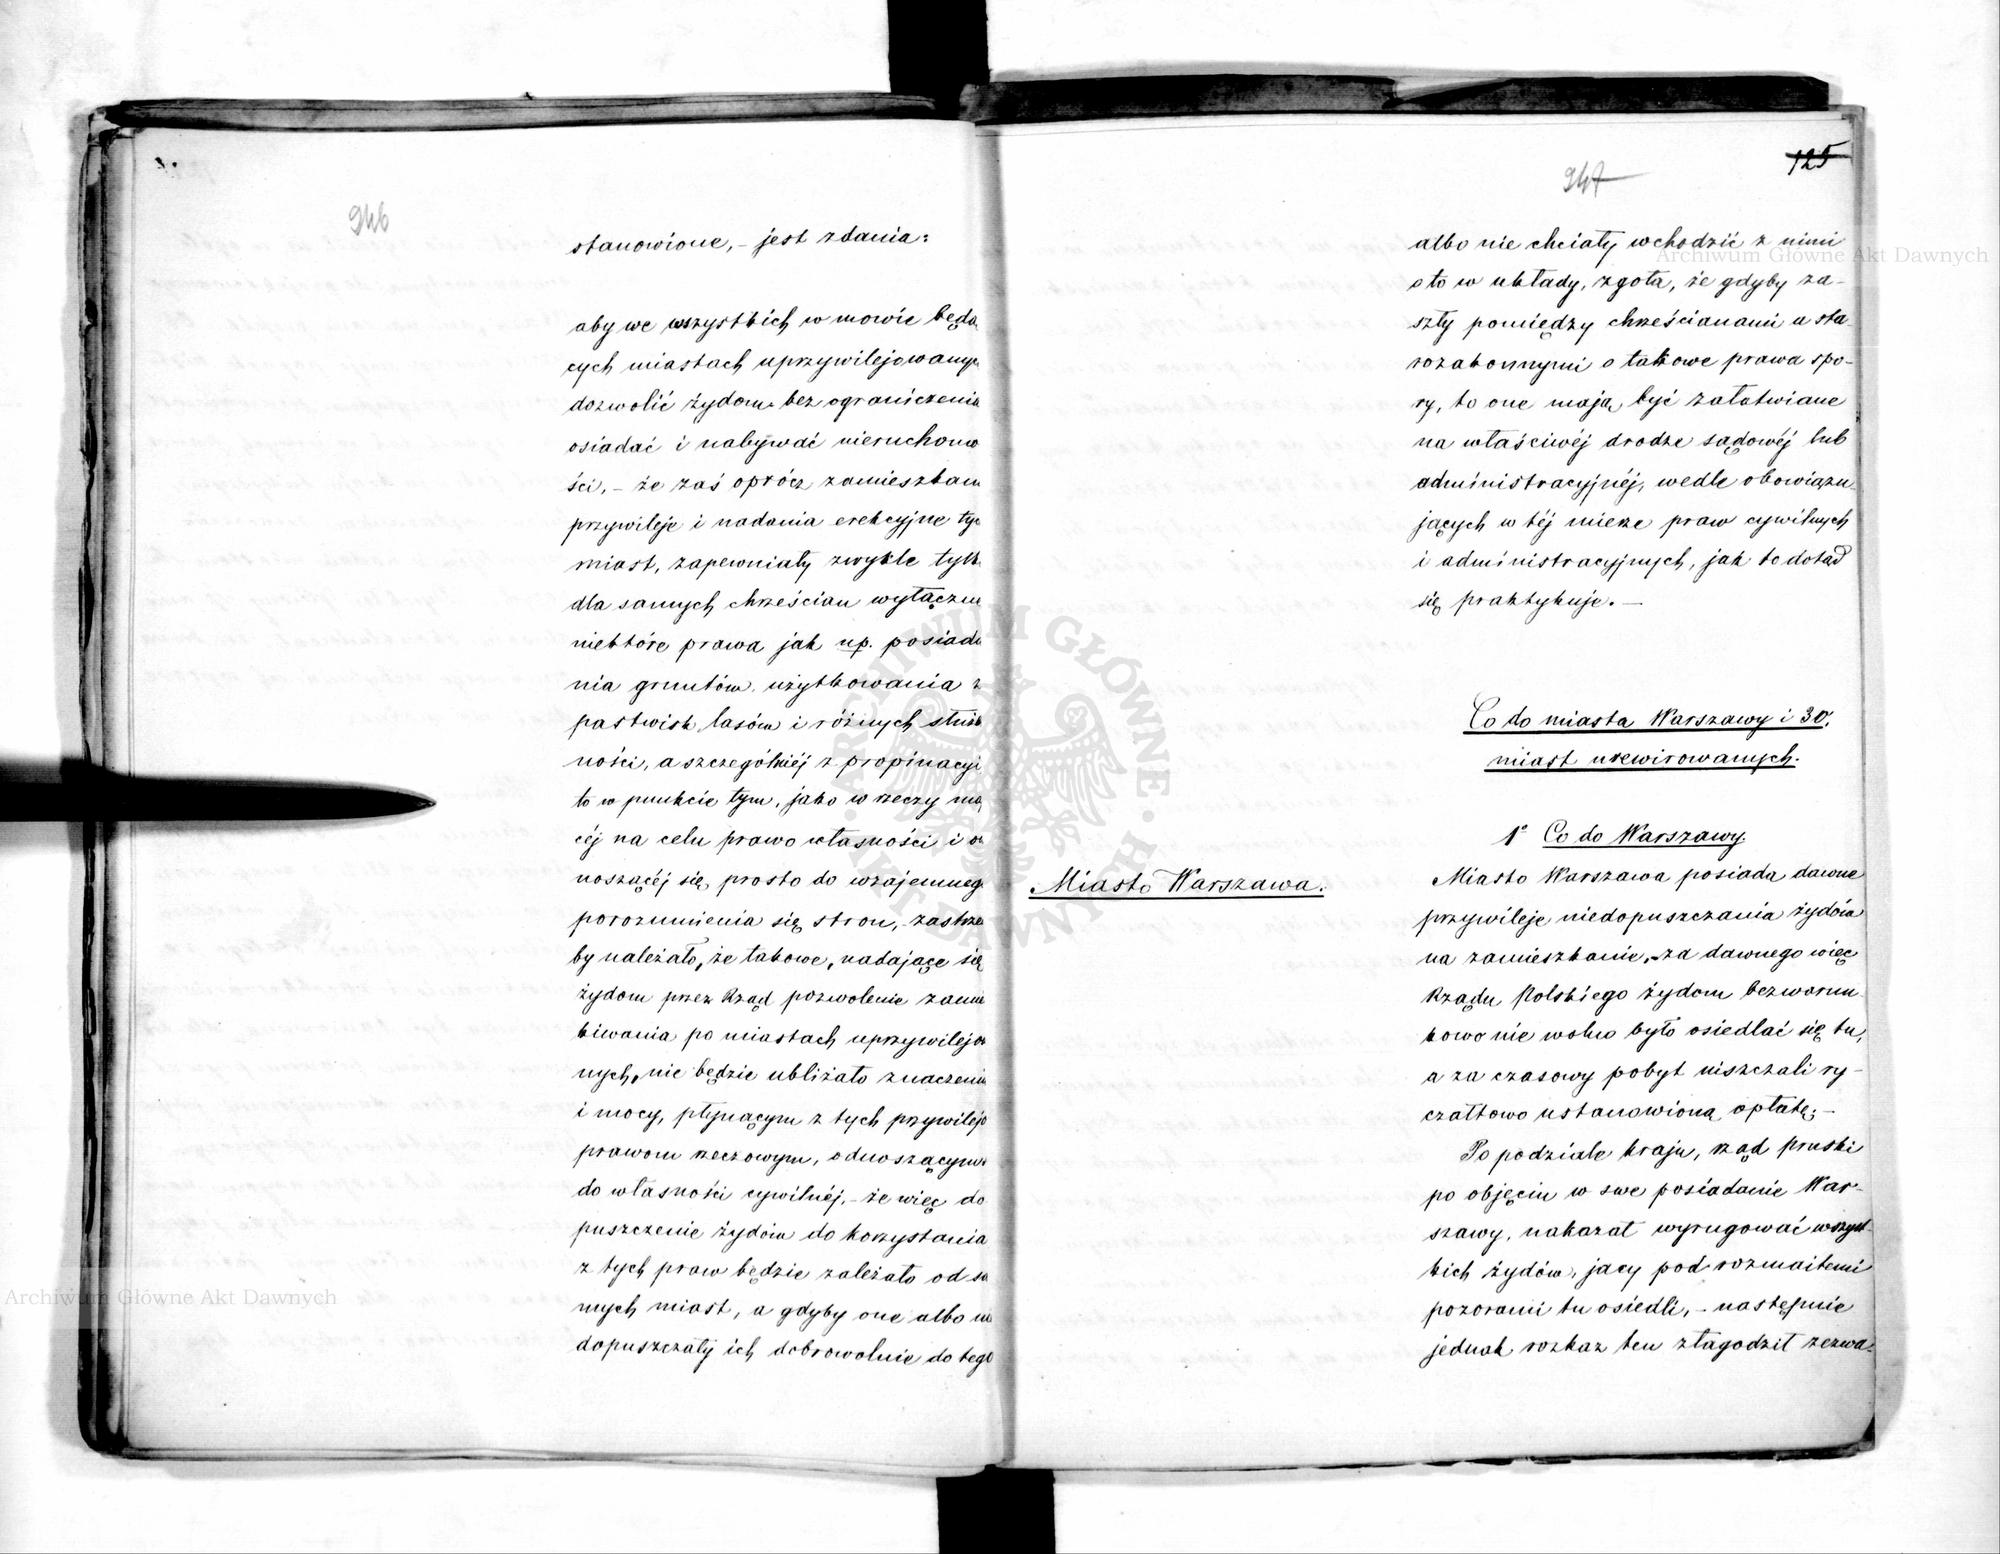 946
stanowione, – jest zdania:
aby we wszystkich w mowie będą
cych miastach uprzywilejowanyc
dozwolić żydom bez ograniczenia
osiadać i nabywać nieruchomo
ści, – że zaś oprócz zamieszkan
przywileje i nadania erekcyjne tyc
miast, zapewniały zwykle tylk
dla samych chrześcian wyłączn
niektóre prawa jak np. posiada
nia gruntów, użytkowania z
pastwisk lasów i różnych służe
ności, a szczególniéj z propinacyi
to w punkcie tym, jako w rzeczy mą
céj na celu prawo własności i o
noszącéj się prosto do wzajemneg
porozumienia się stron, – zastrze
by należało, że takowe, nadające się
żydom przez Rząd pozwolenie zamie
kiwania po miastach uprzywilejo
nych, nie będzie ubliżało znaczeniu
i mocy, płynącym z tych przywilejo
prawom rzeczowym, odnoszącym
do własności cywilnéj, – że więc do
puszczenie żydów do korzystania
z tych praw będzie zależało od sa
mych miast, a gdyby one albo nie
dopuszczały ich dobrowolnie do tego
125
947
albo nie chciały wchodzić z nimi
o to w układy, zgoła, że gdyby za-
szły pomiędzy chrześcianami a sta-
rozakonnymi o takowe prawa spo-
ry, to one mają być załatwiane
na właściwéj drodze sądowéj lub
administracyjnéj, wedle obowiązu-
jących w téj mierze praw cywilnych
i administracyjnych, jak to dotąd
się praktykuje. –
Co do miasta Warszawy i 30.
miast urewirowanych.
1° Co do Warszawy.
Miasto Warszawa.
Miasto Warszawa posiada dawne
przywileje niedopuszczania żydów
na zamieszkanie, – za dawnego więc
Rządu Polskiego żydom bezwarun
kowo nie wolno było osiedlać się tu,
a za czasowy pobyt uiszczali ry-
czałtowo ustanowioną opłatę; –
Po podziale kraju, rząd pruski
po objęciu w swe posiadanie War-
szawy, nakazał wyrugować wszyst-
kich żydów, jacy pod rozmaitemi
pozorami tu osiedli, – następnie
jednak rozkaz ten złagodził zezwa-
Archiwum Główne Akt Dawnych
Archiwum Główne Akt Dawnych
ARCHIWUM GŁÓWNE AKT DAWNYCH